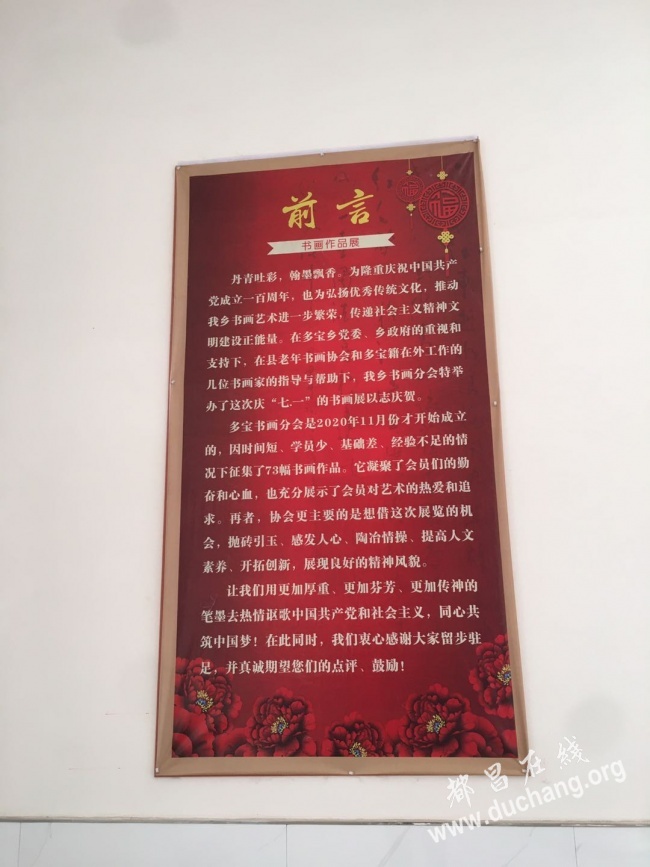 前言
福
福
书画作品展
丹青吐彩，翰墨飘香。为隆重庆祝中国共产
党成立一百周年，也为弘扬优秀传统文化，推动
我乡书画艺术进一步繁荣，传递社会主义精神文
明建设正能量。在多宝乡党委、乡政府的重视和
支持下，在县老年书画协会和多宝籍在外工作的
几位书画家的指导与帮助下，我乡书画分会特举
办了这次庆“七.一”的书画展以志庆贺。
多宝书画分会是2020年11月份才开始成立
的，因时间短、学员少、基础差、经验不足的情
况下征集了73幅书画作品。它凝聚了会员们的勤
奋和心血，也充分展示了会员对艺术的热爱和追
求。再者，协会更主要的是想借这次展览的机
会，抛砖引玉、感发人心、陶冶情操、提高人文
素养、开拓创新，展现良好的精神风貌。
让我们用更加厚重、更加芬芳、更加传神的
笔墨去热情讴歌中国共产党和社会主义，同心共
筑中国梦！在此同时，我们衷心感谢大家留步驻
足，并真诚期望您们的点评、鼓励！
都昌在线
www.duchang.org